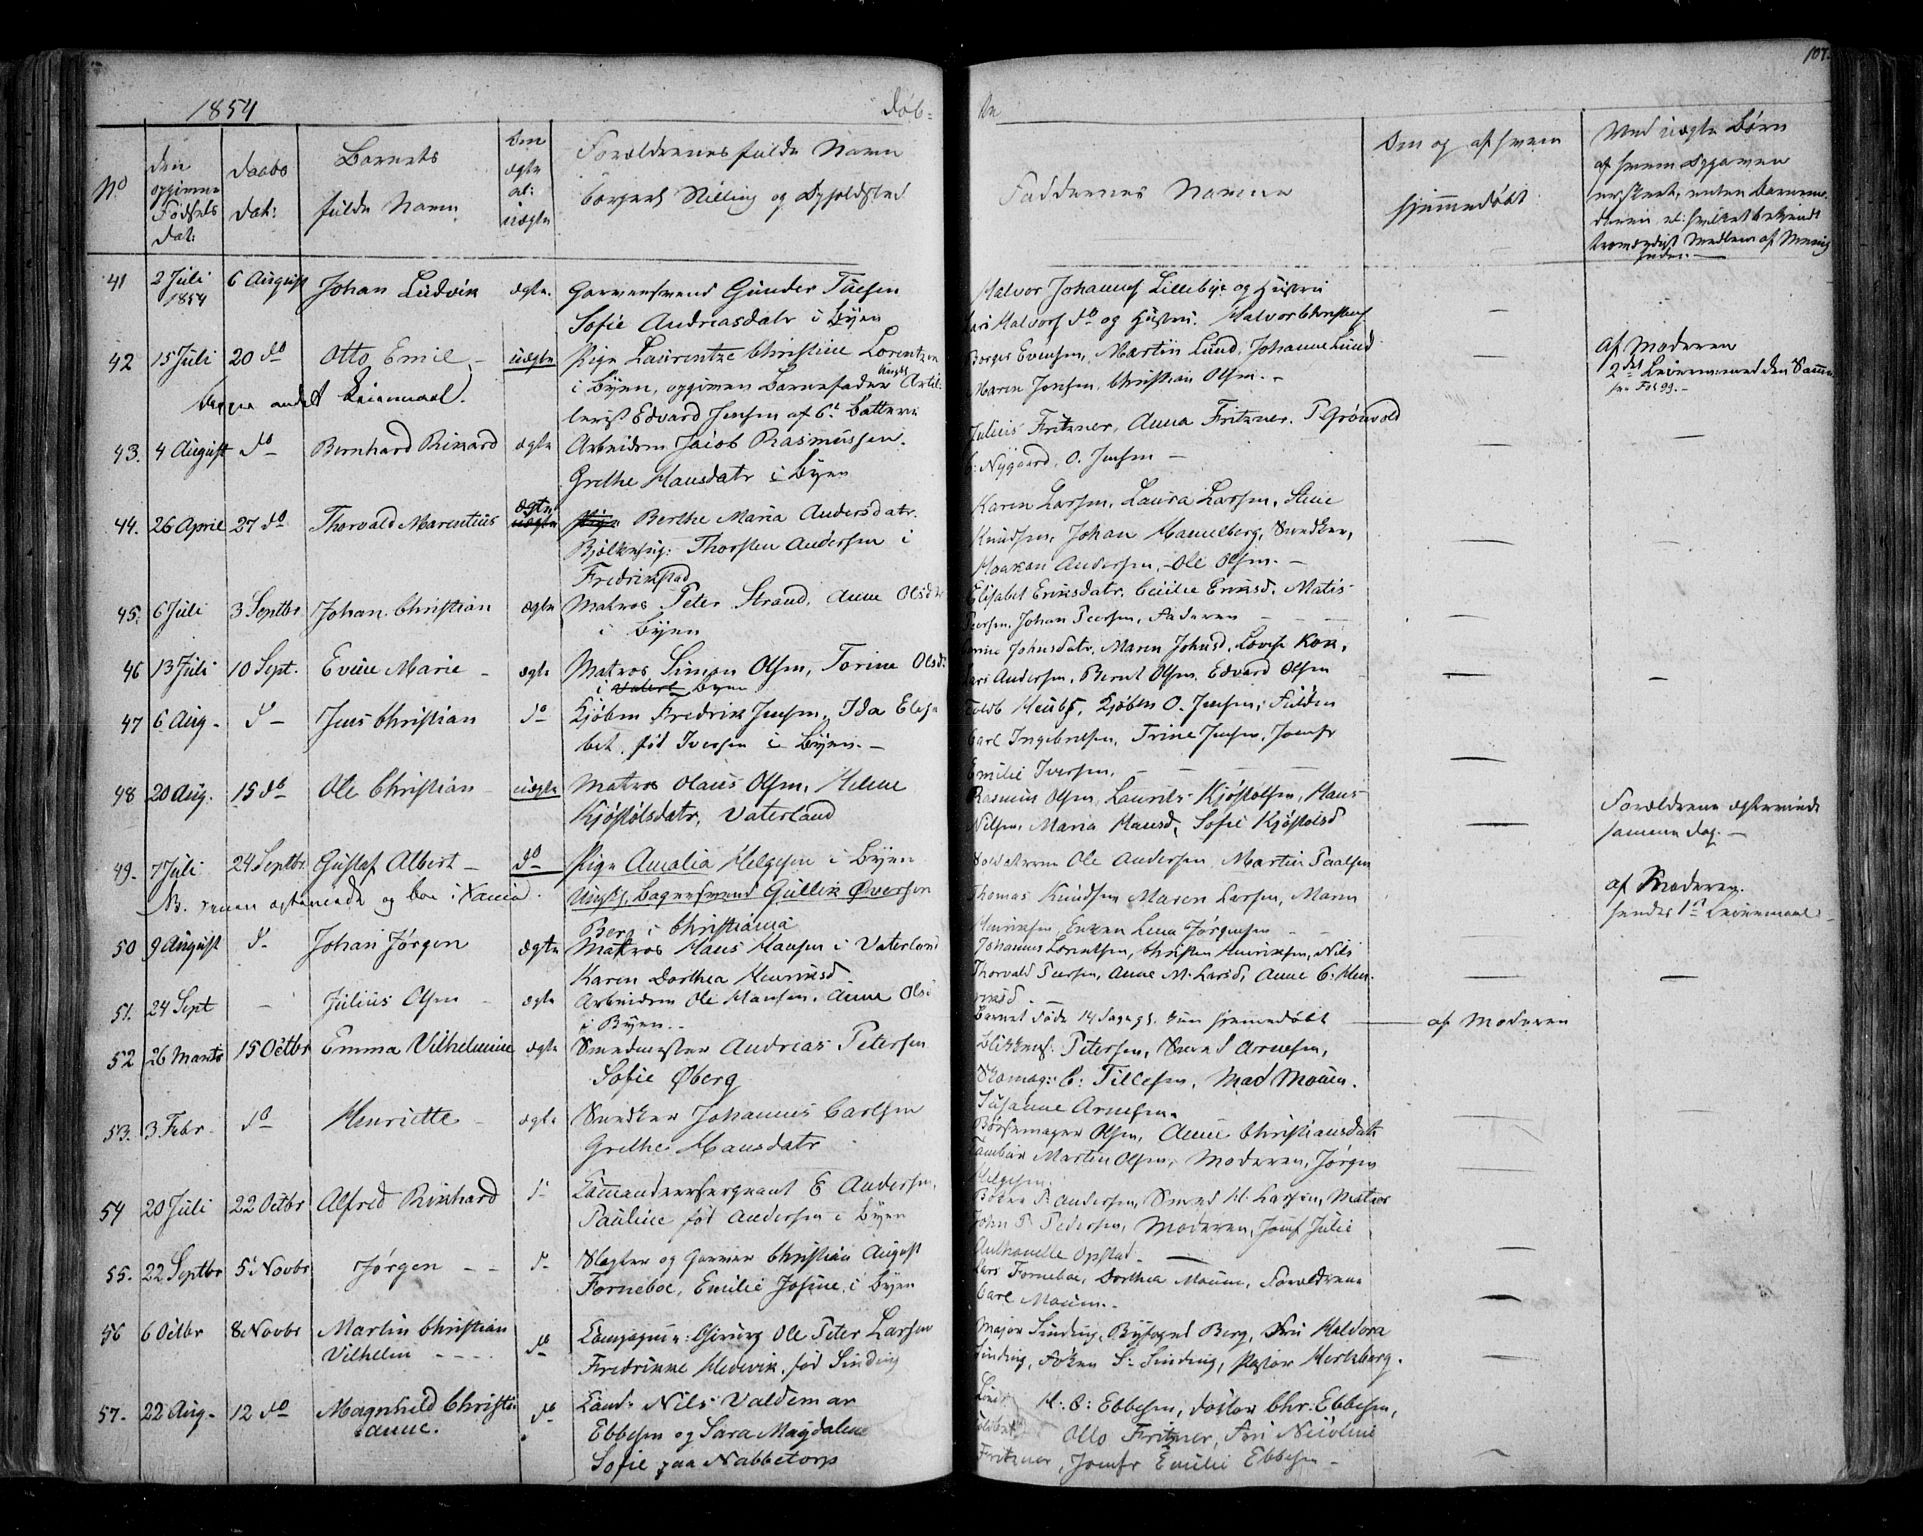 1854
Døb-
te
107.
No
den opgivne Fødsels Dat:
Daabs Dat:
Barnets fulde Navn
Om ægte el: uægte
Forældrenes fulde Navn
borgerl Stilling og Opholdsted
Faddernes Navne
Om og af hvem
hjemmedøbt
Ved uægte Børn
af hvem Opgaven
er skeet, enten Barnemo-
deren el: hvilket bekjendt
troværdigt Medlem af Menig
heden.
41 2 Juli 1854 6 August Johan Ludvik ægte. Garversvend Gunder Tuesen
Sofie Andreasdatr i Byen
Halvor Johannes Lilleby og Hustru
Kari Halvors do og Hustru. Halvor Christens
42 15 Juli 20 do Otto Emil uægte Pige Laurentze Christine Lorentzen
i Byen, opgiven Barnefader Ungk Artil-
lerist Edvard Jensen af 6t Batteri
Begges andet Leiermaal.
Borger Evensen, Martin Lund, Johanne Lund
Maren Jensen, Christian Olsen. -
Af Moderen
2det Leierm: med den Samme
see Fol 99. -
43. 4 August do Bernhard Rikard ægte Arbeider Jacob Rasmussen.
Grethe Hansdatr i Byen
Julius Fritzner, Anna Fritzner. P Grönvold
C: Nygaard, O. Jensen -
44. 26 April 27 do Thorvald Marentius ægte uægte Pige Berthe Maria Andersdatr.
Thorsten Andersen i
Fredrikstad
Karen Larsen, Laura Larsen, Stine
Knudsen, Johan Hammelberg, Snedker,
Haakon Andersen, - Ole Olsen. -
45. 6 Juli 3 Septbr Johan Christian ægte Matros Peter Strand, Anne Olsdtr
i Byen
Elisabet Eriksdatr, Cicilie Eriksd. Matis
Peersen, Johan Peersen, Faderen
46 13 Juli 10 Sept. Evine Marie - ægte Matros Simen Olsen, Torine Olsd:
i Vaterl Byen
Johnsdatr, Maren Johnsd, Lovise Kok,
Andersen, Bernt Olsen, Edvard Olsen
47 6 Aug - d - Jens Christian do Kjöbm Fredrik Jensen, Ida Elisa
bet, fød Iversen i Byen. -
Kjöbm O. Jensen,
Carl Ingebretsen, Trine Jensen, Jomfr
Emilie Iversen.
48 20 Aug. 15 do Ole Christian uægte Matros Olaus Olsen, Helene
Kjøstolsdatr, Vaterland
Rasmus Olsen, Laurits Kjøstolsen, Hans
Nilsen, Maria Hansd, Sofie Kjøstolsd
Forældrene ægteviede
samme Dag. -
49. 7 Juli 24 Septbr. Gustaf Albert - do Pige Amalia Helgesen i Byen
Ungk, Bagersvend Gullik Øversen
Berg i Christiania
NB. senere ægteviede og boe i Xania.
Ole Andersen, Martin Paalsen
Thomas Knudsen Maren Larsen, Maren
Henriksen, Enken Lena Jørgensen
af Moderen.
hendes 1ste Leiermaal -
50 9 August d - Johan Jørgen ægte Matros Hans Hansen i Vaterland
Karen Dorthea Henriksd
Johannes Lorentsen, Christen Henriksen, Nils
Thorvald Peersen, Anne M. Larsd, Anne C. Hen
riksd
51. 24 Sept - Julius Olsen - ægte Arbeider Ole Hansen, Anne Olsd
i Byen. -
Barnet døde 14 Dage gl. kun hjemmedøbt
af Moderen
52 26 Marts 15 Octbr Emma Vilhelmine ægte Smedmester Andreas Petersen
Sofie Øberg
Petersen, Smed Arnesen,
Skomag: C: Tillesen, Mad Mouen.
Susanne Arnesen.
53. 3 Febr. do Henriette - ægte Snedker Johannes Carlsen
Grethe Hansdatr
Børsemager Olsen, Anne Christiansdatr
Tambur Martin Olsen, Moderen, Jørgen
Helgesen.
54 20 Juli 22 Octbr Alfred Rinhard d - Commandeersergeant E Andersen,
Pauline fød Andersen i Byen
P: Andersen, Smed H. Larsen, Matros
John P. Pedersen, Moderen, Jomf Julie
Anthonette Opstad.
55. 22 Septbr 5 Novbr Jørgen - - d - Slagter og Garver Christian August
Forneboe, Emilie Josine, i Byen
Lars Forneboe, Dorthea Mouum, Forældrene
Carl Mouum.
56 6 Octbr 8 Novbr Martin Christian
Vilhelm - - - do Compagnie: Chirurg Ole Peter Larsen
Fredrikke Hedevik, fød Sinding
Major Sinding, Byfoged Berg, Fru Haldora
Sinding, Frøken S: Sinding, Pastor Hertzberg.
57. 22 Aug - 12 do Magnhild Christi-
anne. do Cand: Nils Valdemar
Ebbesen og Sara Magdalene
Sofie paa Nabbetorp
H: C: Ebbesen, doktor Chr: Ebbesen,
Otto Fritzner, Fru Nicoline
Fritzner, Jomfr Emilie Ebbesen -